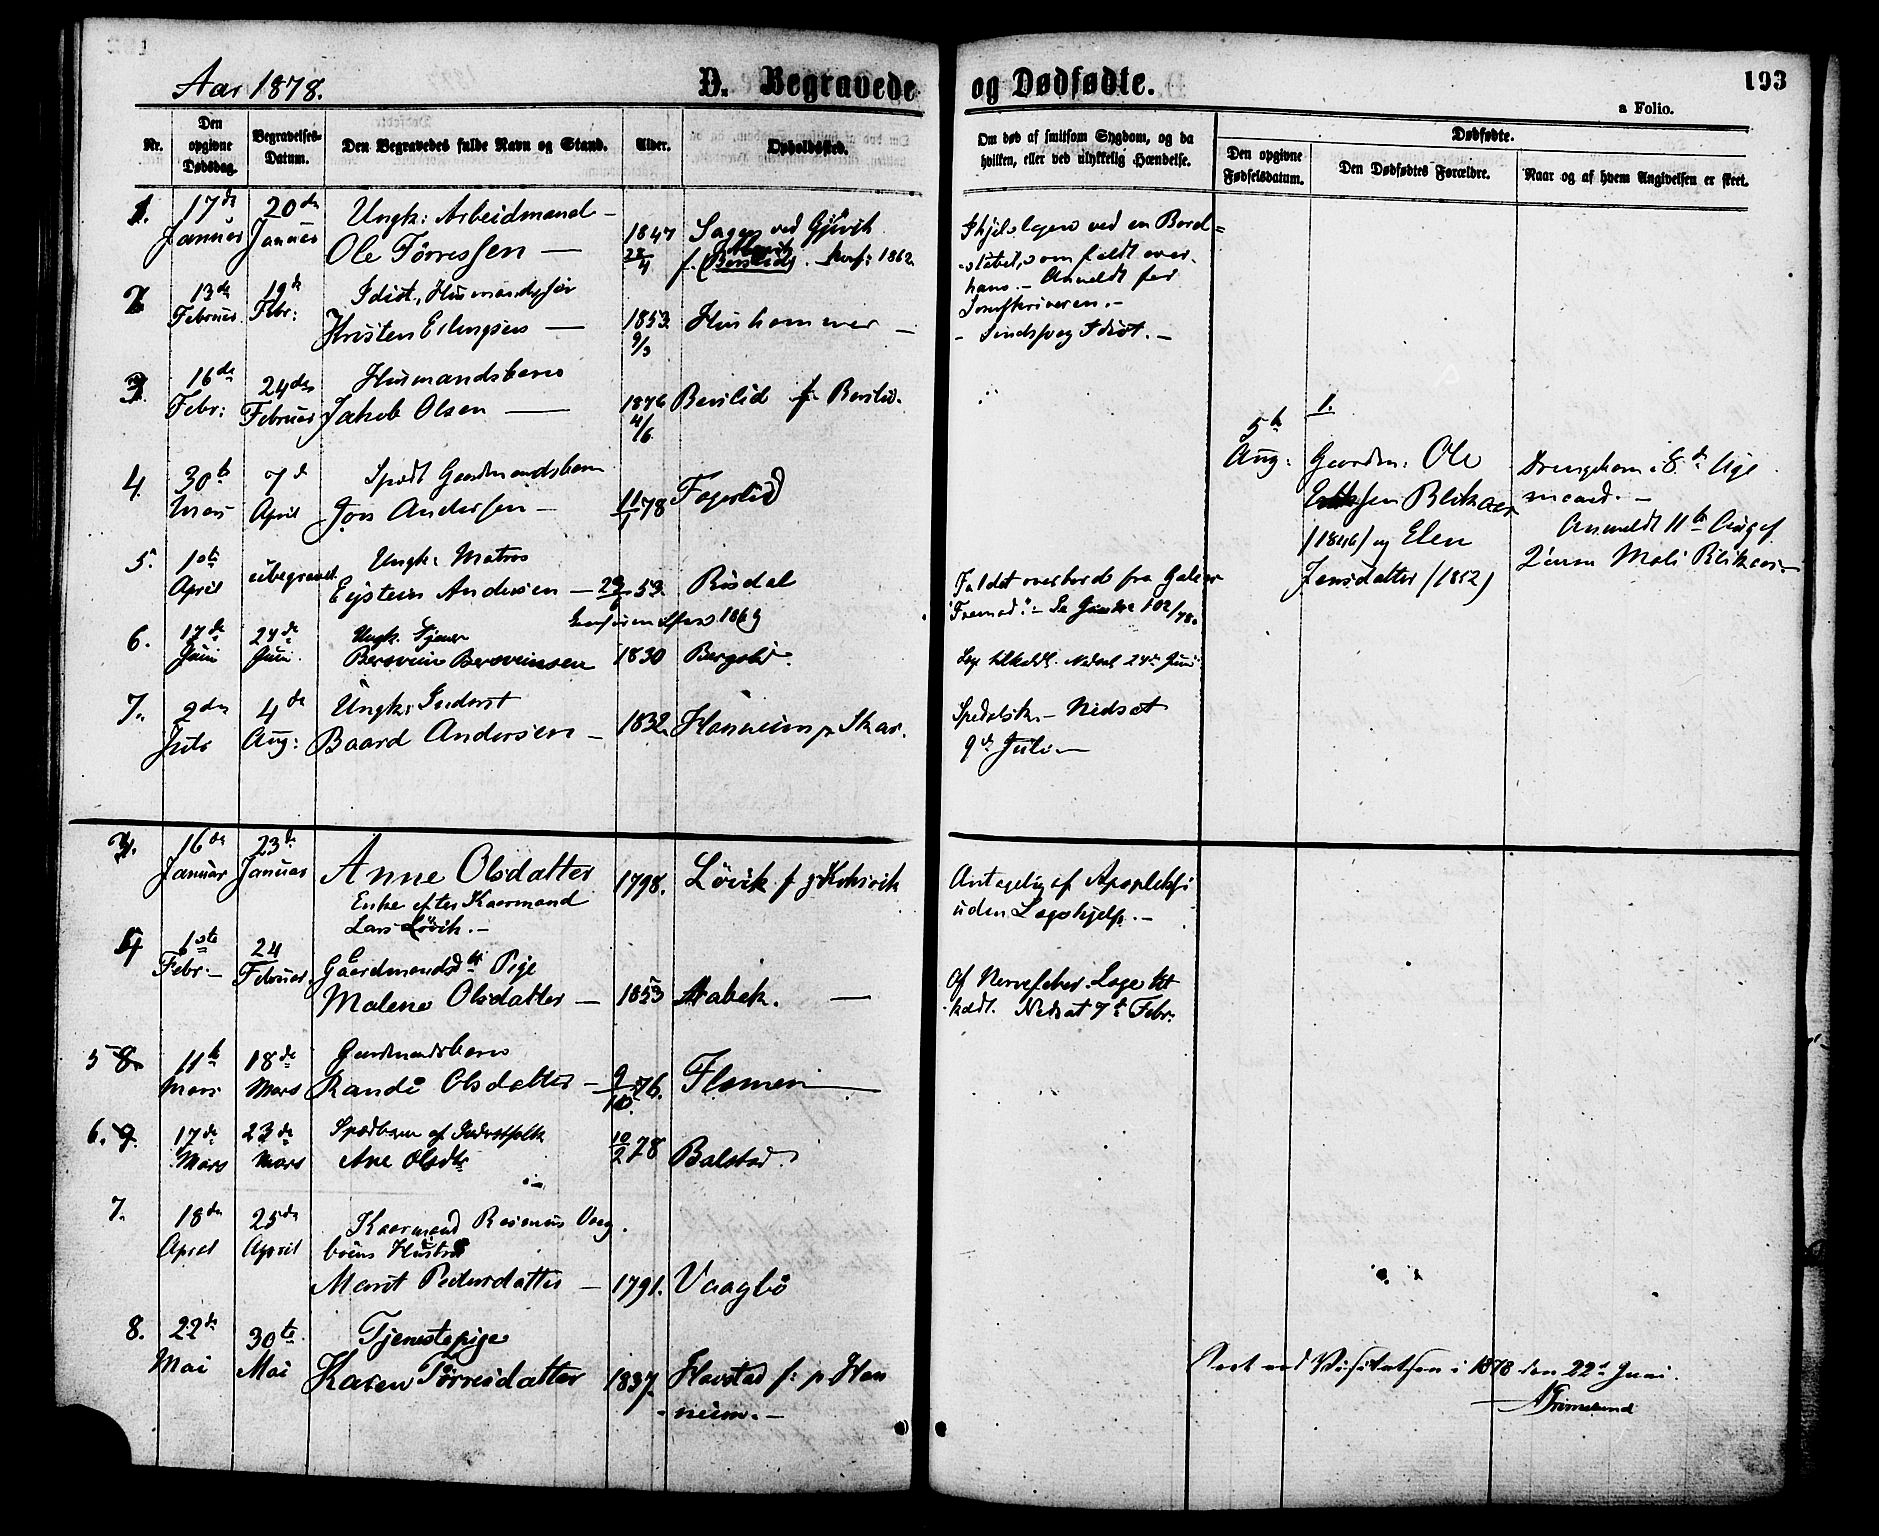 Aar 1878.
D. Begravede og Dødfødte.
193
a Folio.
Nr.
Den opgivne Dødsdag.
Begravelses-Datum.
Den Begravedes fulde Navn og Stand.
Alder.
Opholdssted.
Om død af smitsom Sygdom, og da hvilken, eller ved ulykkelig Hændelse.
Dødfødte.
Den opgivne Fødselsdatum.
Den Dødfødtes Forældre.
Naar og af hvem Angivelsen er skeet.
1. 17de Januar 20de Januar Ungk: Arbeidmand
Ole Tørressen 1847 Sagen ved Gjørvik
Ihjelslagen ved en Bord-
stabel, som faldt over
ham. Anmeldt for
Sorenskriveren.
2 13de Februar 19de Febr:
Kristen Erlingsen 1853 9/3 Hushammer
Sindssvag Idiot.
3 16de Febr: 24de Februar Husmandsbarn
Jakob Olsen 1876 4/6 Berslid f. Berslid.
4 30te Mars 7de April Spædt Gaardmandsbarn
Jon Andersen 11/1 78 Fagerlid
5. 1ste April ubegravet Ungk: Matros
Eistein Andersen 53 Risdal
Faldet overbord fra Galeas
"Fremad".
6. 17de Juni 24de Juni. Ungk. Tjener
Bersvein Bersveinsen 1830 Bergslid.
Læge tilkaldt. Nedsat 24de Juni
7. 2den Juli 4de Aug: Ungk: Inderst
Baard Andersen 1832 Hanneim p. Skar.
Spedalsk Nedsat
9de Juli
5te Aug:
1.
Gaardm: Ole
Blikaas
(1846) og Elen
Jensdatter (1852)
Drengebarn i 8de Uge
maaned.
Anmeldt 11te Aug af
Mali Blikaas.
3. 16de Januar 23de Januar Anne Olsdatter 1798. Løvik f.
Enke efter Kaarmand
Lars Løvik.
Antagelig af Apopleksi
uden Lægehjelp.
4 1ste Febr. 24 Februar Gaardmandsdtr Pige
Malene Olsdatter 1853 Stabek.
Af Nervefeber. Læge til
kaldt. Nedsat 7de Febr.
5 8. 11te Mars 18de Mars Gaardmandsbarn
Randi Olsdatter 9/10 76. Flemmen
6. 9. 17de Mars 23de Mars Spædbarn af Inderstfolk
Ane Olsdtr 10/2 78 Balstad.
7. 18de April 25de April Kaarmand Rasmus Vaag
bøens Hustru
Marit Pedersdatter 1791. Vaagbø
8. 22de Mai 30te Mai Tjenestepige
Karen Tørresdatter 1837 Havstad f: p. Han
neim.
Seet ved Visitatsen i 1878 den 22de Juni.